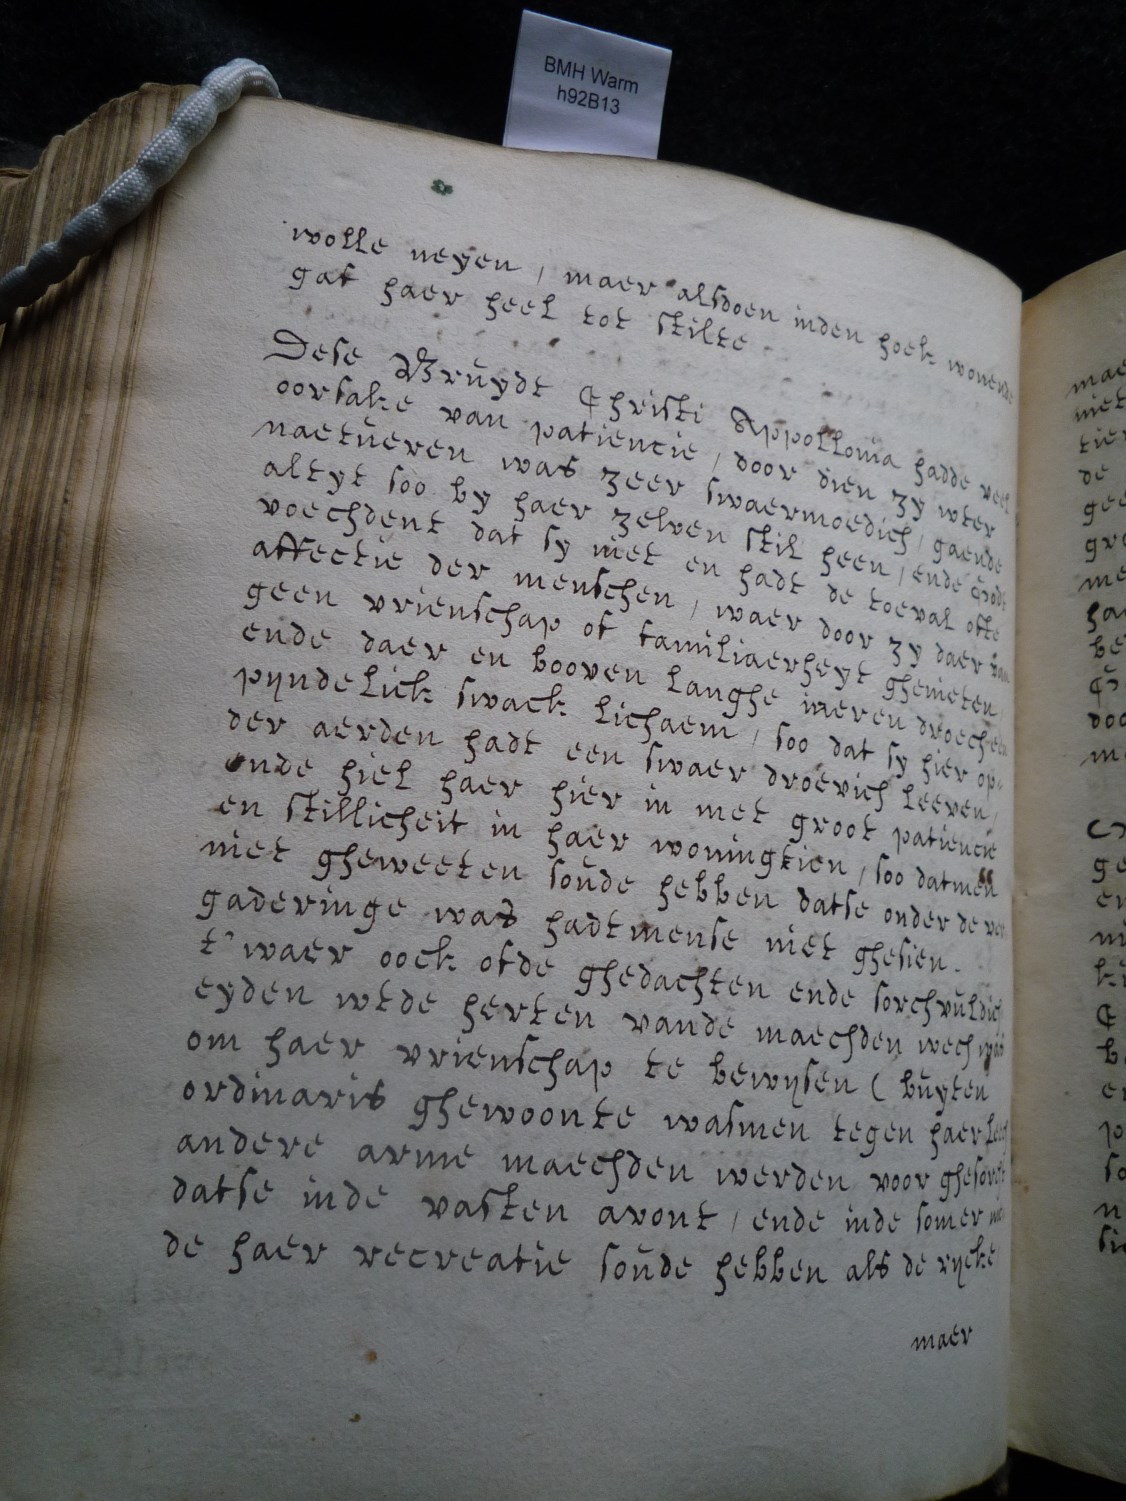 BMH Warm
h92B13
wolle neyen / maer alsdoen inden hoek wonende
gaf haer heel tot stilte
Dese Bruydt Christi Appollonia hadde veel
oorsake van patiencie / door dien zy wter
naetueren was zeer swaermoedich / gaende
altyt soo by haer zelven stil heen / ende
voechdent dat sy niet en hadt de toeval ofte
affectie der menschen / waer door zy daer van
geen vrienschap of familiaerheyt ghenieten
ende daer en booven langhe iaeren droech
pijndelick swack lichaem / soo dat sy hier op
der aerden hadt een swaer droevich leeven /
ende hiel haer hier in met groot patiencie
en stillicheit in haer woningtien / soo datmen
niet gheweeten soude hebben datse onder de ver
gaderinge was hadtmense niet ghesien.
t' waer oock ofde ghedachten ende sorchvuldich
eyden wtde herten vande maechden wech
om haer vrienschap te bewijsen ( buyten
ordinaris ghewoonte wasmen tegen haer
andere arme maechden werden voor ghesorcht
datse inde vasten avont / ende inde somer
de haer recreatie soude hebben als de rijcke
maer
mae
niet
de
gee
gro
me
be
doo
ge
en